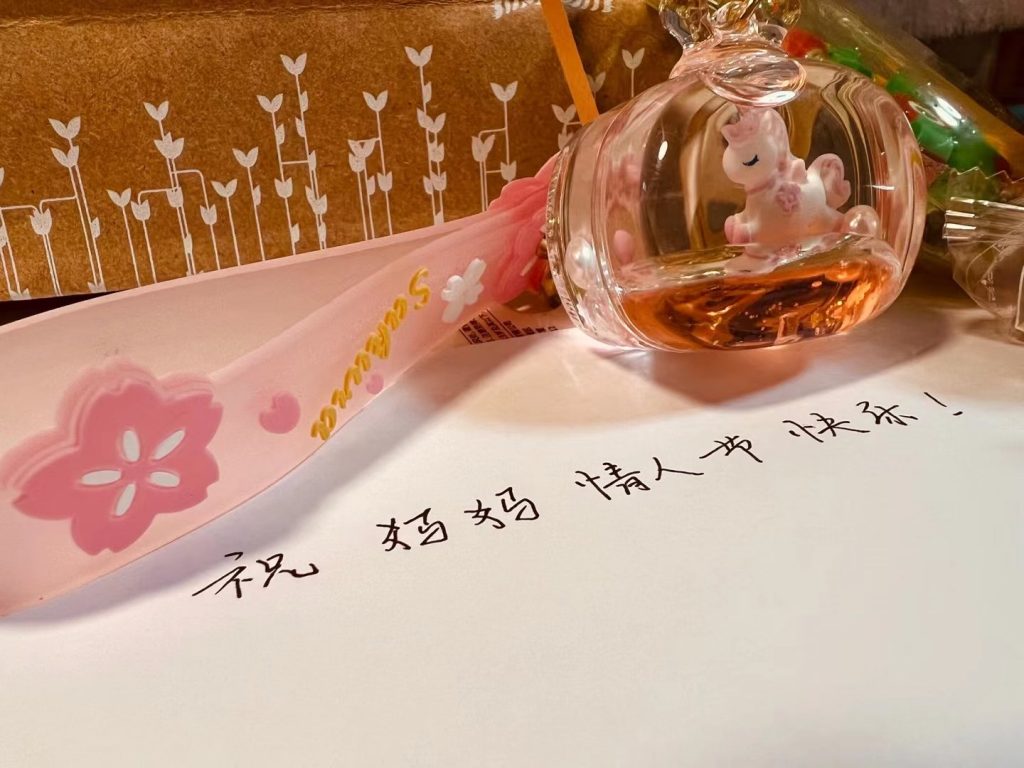 Sakura
祝 妈妈 情人节 快乐！